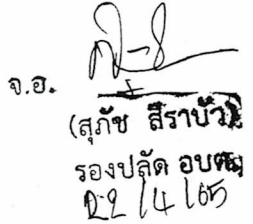 จ.อ.
(สุภัช สีราบัว)
รองปลัด อบต.
22/4/65